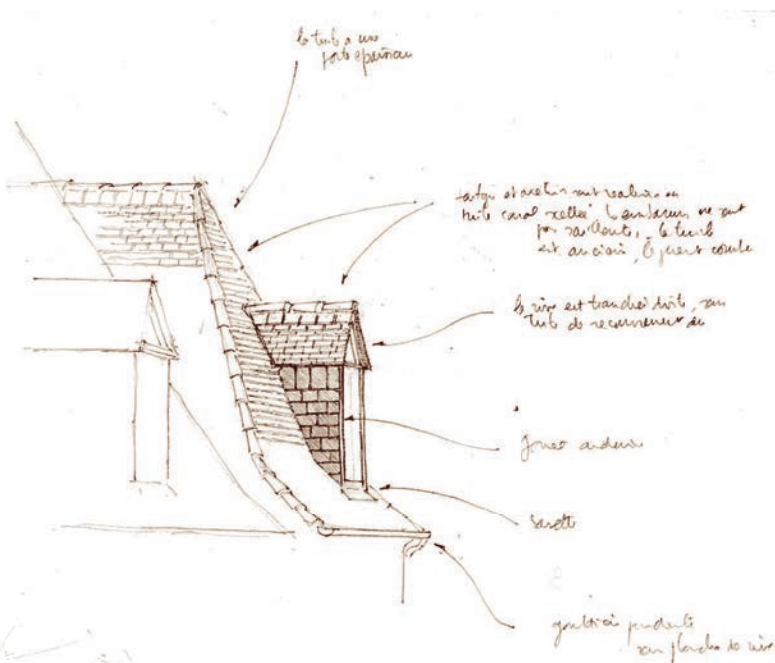 la tuile a une
forte épaisseur
faitage et aretier sont realisés en
tuile canal scellée
pas saillants, la tuile
est ancienne,
la rive est tranchée droite, sans
tuile de recouvrement
jouee ardoise
bavette
gouttiere pendante
sans planche de rive